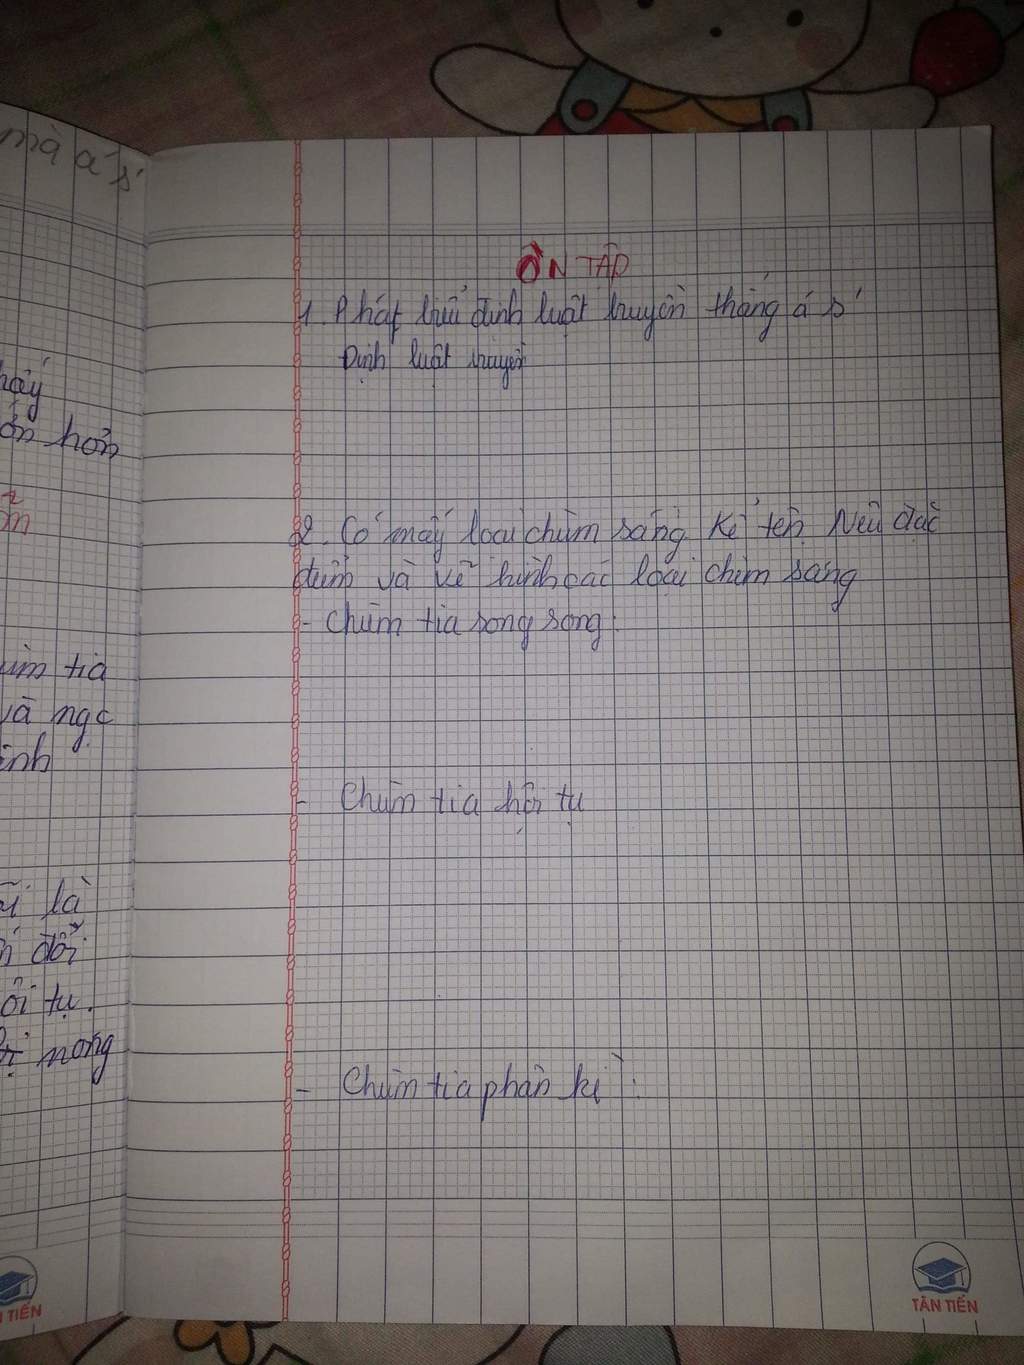 mà á s'
hấy
ớn hơn
ùm tia
và ngc
ình
là
đổi
ội tụ.
mỏng
ÔN TẬP
1. Phát biểu định luật truyền thẳng á s'
Định luật truyền
2. Có mấy loại chùm sáng. Kể tên. Nêu đặc
điểm và vẽ hình các loại chùm sáng
- Chùm tia song song:
- Chùm tia hội tụ
- Chùm tia phân kì:
TIẾN
TÂN TIẾN